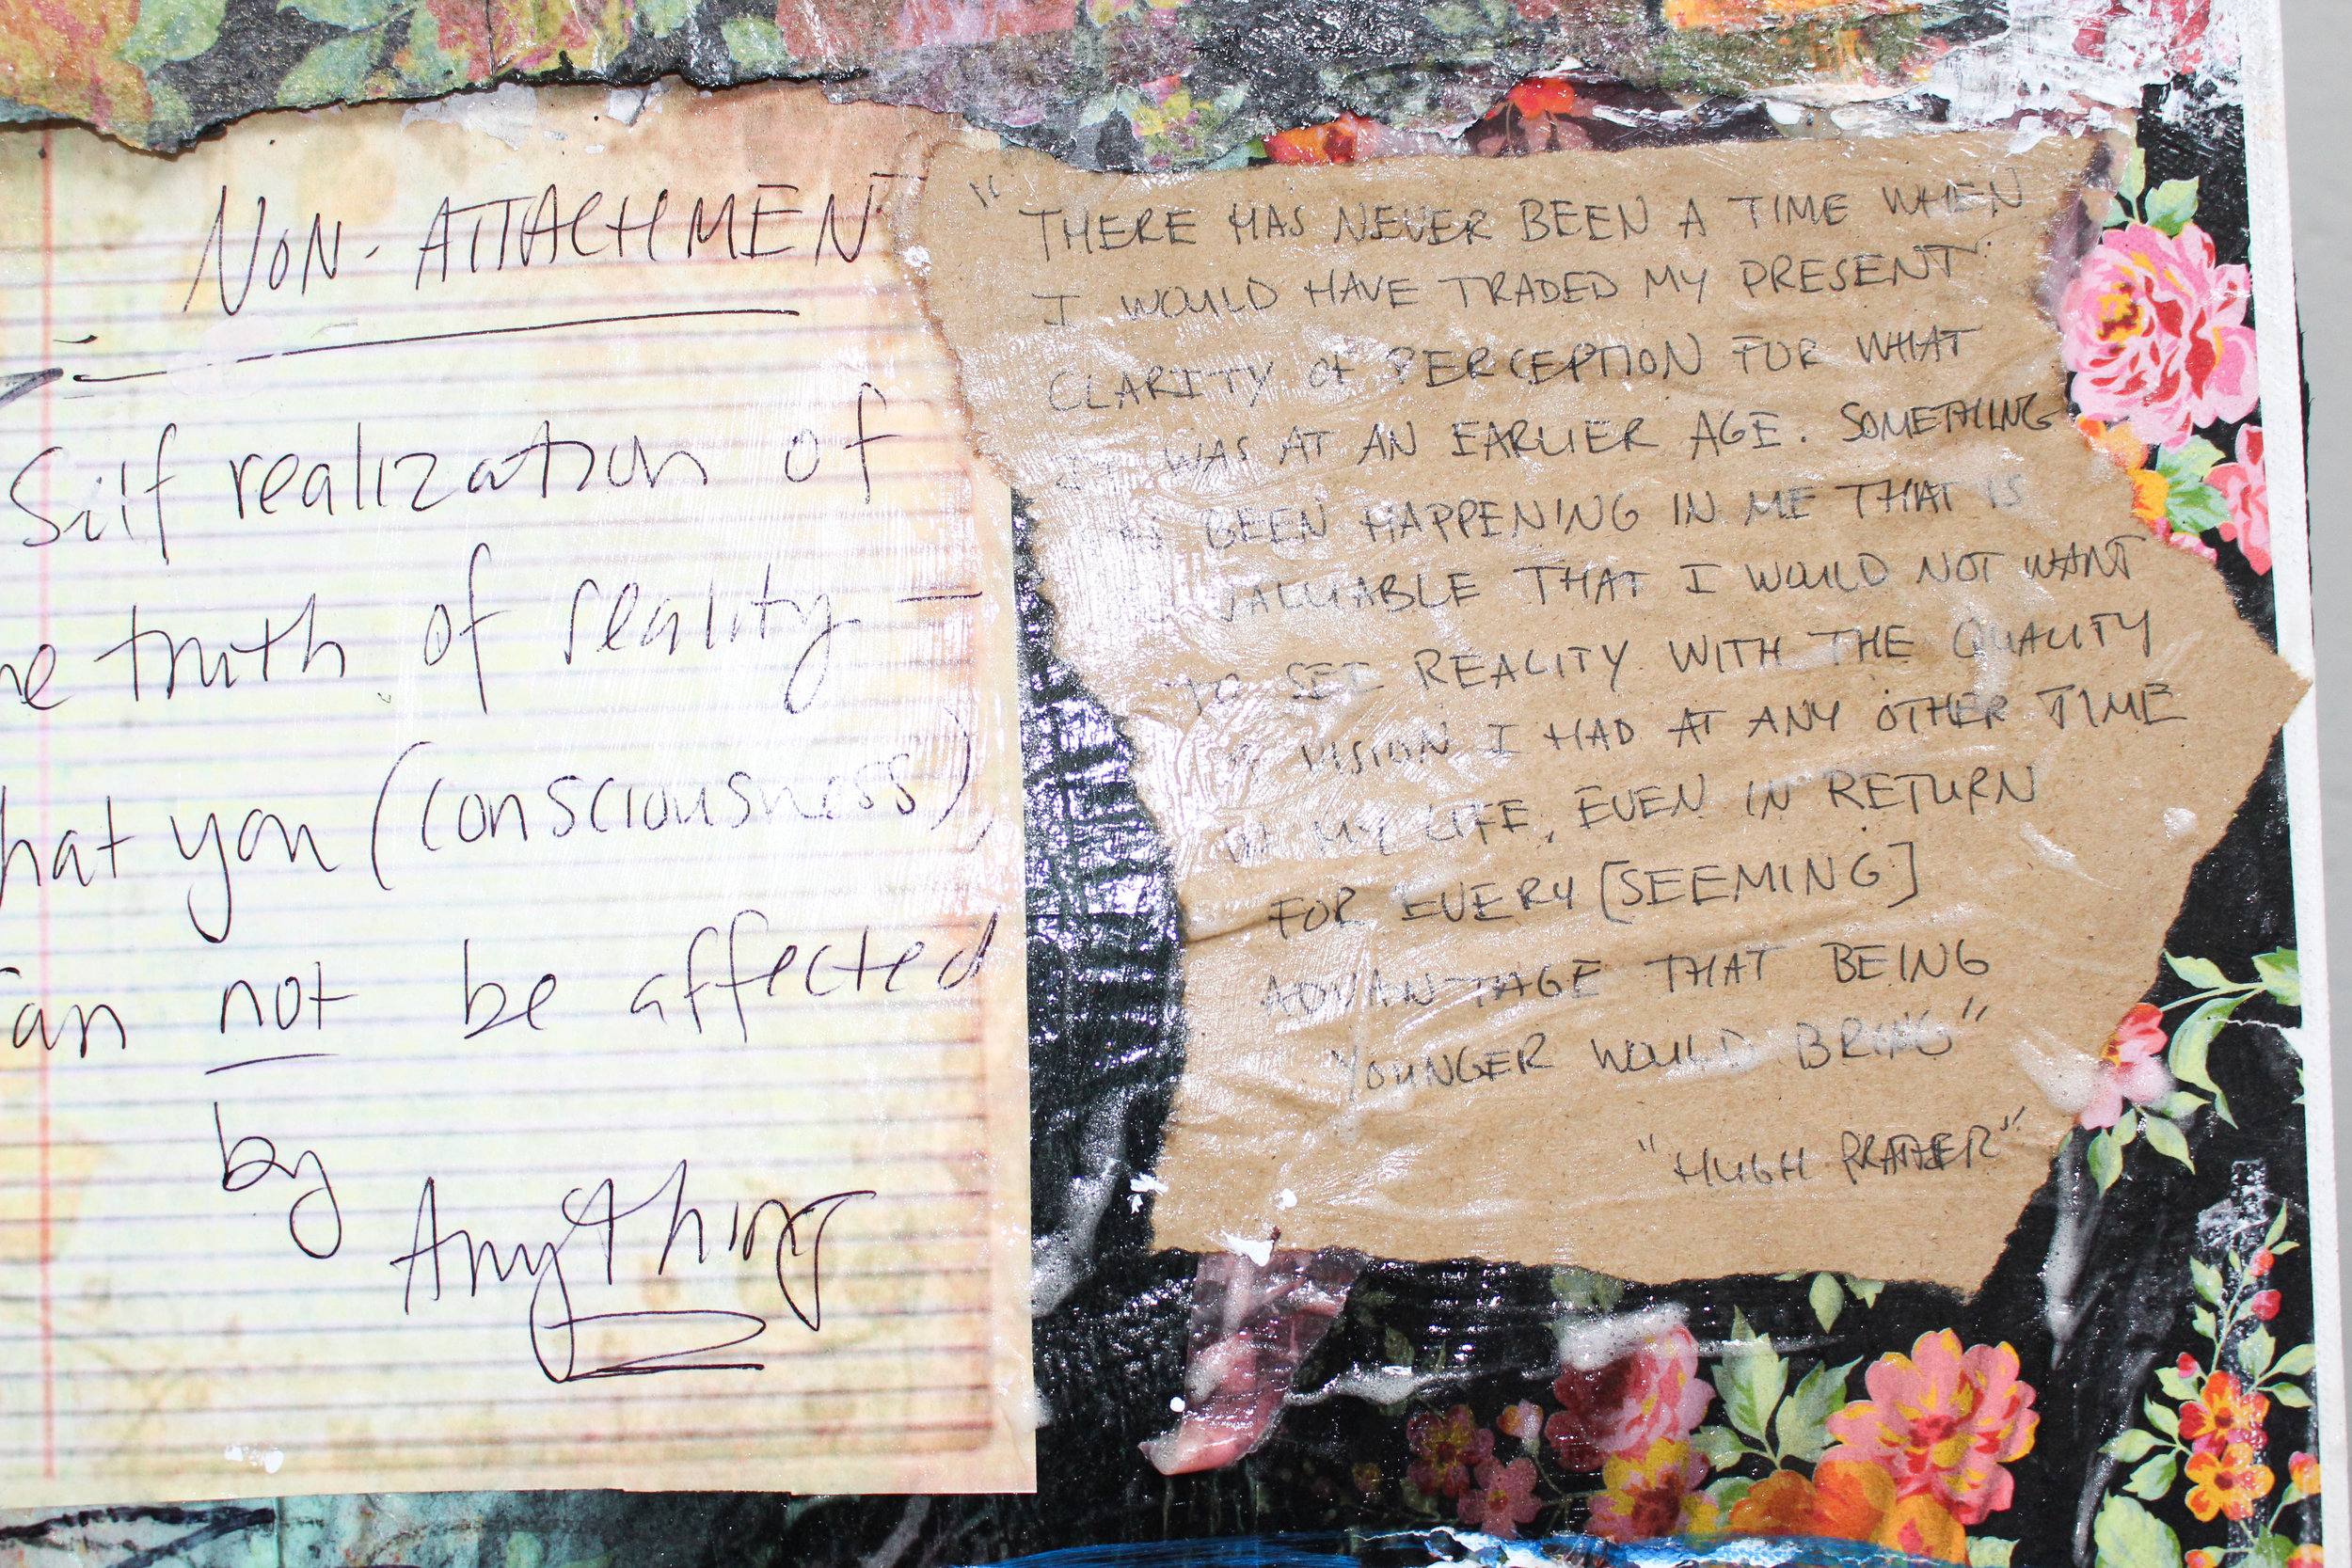 NON-ATTACHMENT
Self realization of
he truth of reality –
hat you (consciousness),
an not be affected
by
Anything
"THERE HAS NEVER BEEN A TIME WHEN
I WOULD HAVE TRADED MY PRESENT
CLARITY OF PERCEPTION FOR WHAT
IT WAS AT AN EARLIER AGE. SOMETHING
BEEN HAPPENING IN ME THAT IS
VALUABLE THAT I WOULD NOT WANT
TO SEE REALITY WITH THE QUALITY
OF VISION I HAD AT ANY OTHER TIME
IN MY LIFE, EVEN IN RETURN
FOR EVERY [SEEMING]
ADVANTAGE THAT BEING
YOUNGER WOULD BRING"
"HUGH PRATHER"